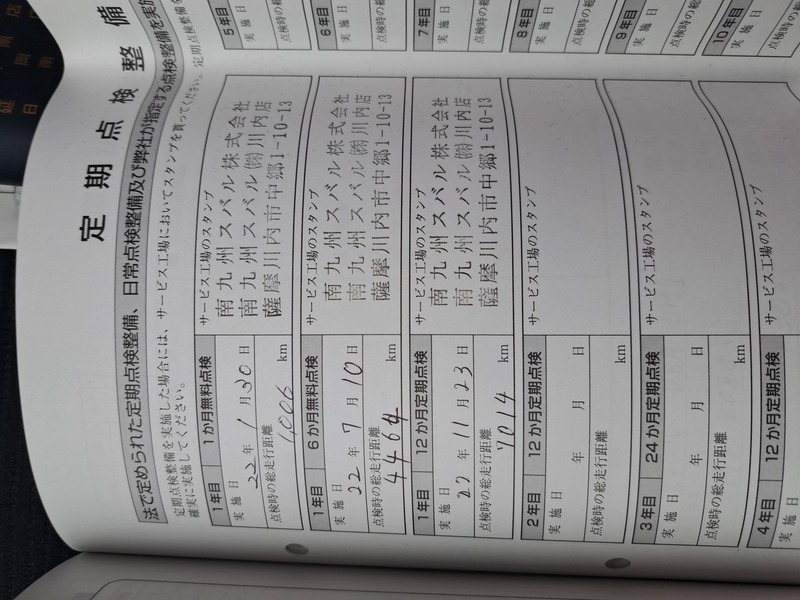 定期点検整備
法で定められた定期点検整備、日常点検整備及び弊社が指定する点検整備を実施
定期点検整備を実施した場合には、サービス工場においてスタンプを貰ってください。定期点検整備を
確実に実施してください。
1年目 1か月無料点検
実施日 22年 1月30日
点検時の総走行距離 1,006 km
サービス工場のスタンプ
南九州スバル株式会社
南九州スバル㈱川内店
薩摩川内市中郷1-10-13
1年目 6か月無料点検
実施日 22年 7月10日
点検時の総走行距離 4464 km
サービス工場のスタンプ
南九州スバル株式会社
南九州スバル㈱川内店
薩摩川内市中郷1-10-13
1年目 12か月定期点検
実施日 22年 11月23日
点検時の総走行距離 7014 km
サービス工場のスタンプ
南九州スバル株式会社
南九州スバル㈱川内店
薩摩川内市中郷1-10-13
2年目 12か月定期点検
実施日 年 月 日
点検時の総走行距離 km
サービス工場のスタンプ
3年目 24か月定期点検
実施日 年 月 日
点検時の総走行距離 km
サービス工場のスタンプ
4年目 12か月定期点検
実施日 年 月 日
サービス工場のスタンプ
5年目
実施日
点検時の総
6年目
実施日
点検時の総
7年目
実施日
点検時の総
8年目
実施日
点検時の総
9年目
実施日
点検時の
10年目
実施日
点検時の